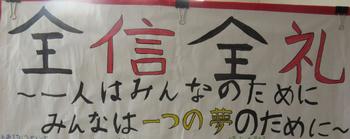 全信全礼
～一人はみんなのために
みんなは一つの夢のために～